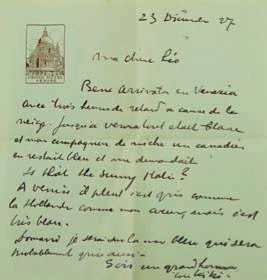 23 Décembre 27
ma chère Léo
Bene arrivata en Venezia
avec trois heures de retard a cause de la
neige. Jusqu'a Verona tout etait blanc
et mon compagnon de niche un canadien
en restait bleu et me demandait
Is that the sunny Italie?
A Venise il pleut c'est gris comme
la Hollande comme mon coeur, mais c'est
très beau.
Demain je serai
probablement gris aussi.
Sois un grand homme